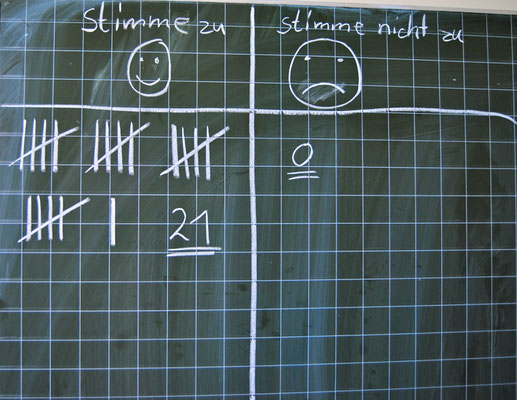 Stimme zu
stimme nicht zu
0
21